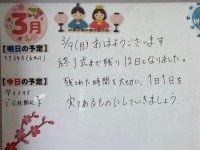 3月
3/9(月) おはようございます
終了式まで残り12日となりました。
残された時間を大切に、1日1日を
実りあるものにしていきましょう。
【明日の予定】
【今日の予定】